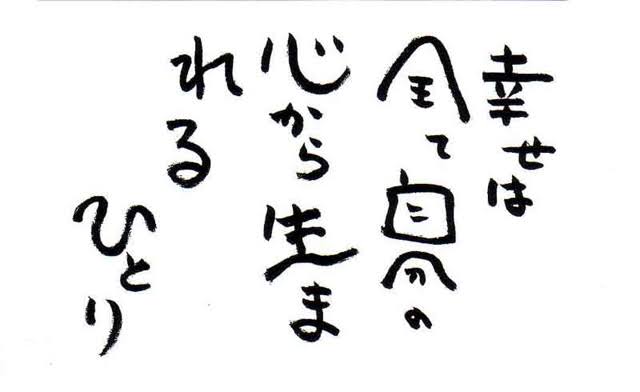 幸せは
全て自分の
心から生ま
れる
ひとり